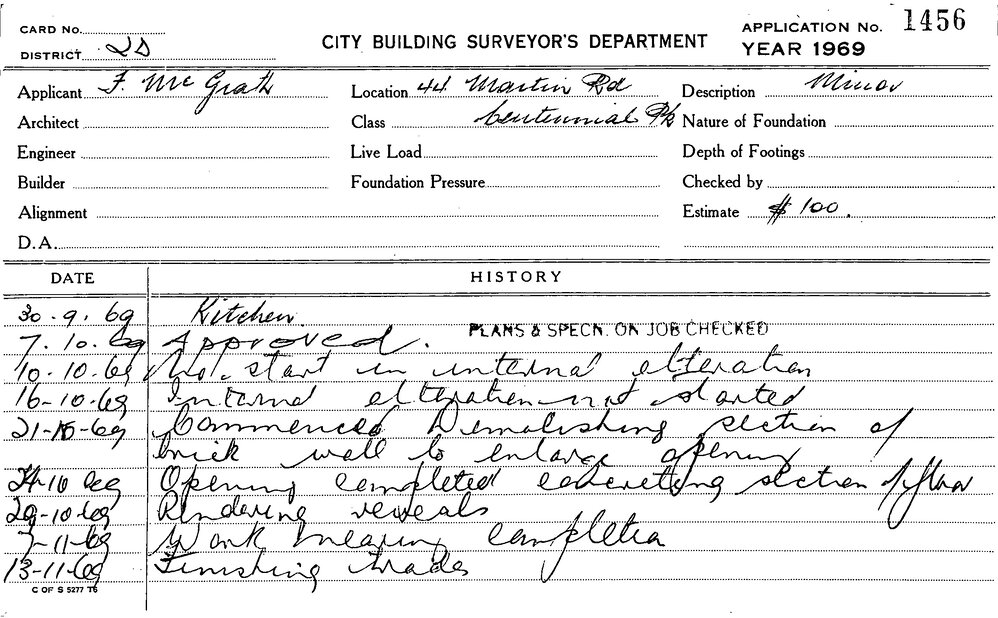 CARD No.
DISTRICT 2D
CITY BUILDING SURVEYOR'S DEPARTMENT
APPLICATION No. 1456
YEAR 1969
Applicant F. McGrath Location 44 Martin Rd Description Minor
Architect Class Centennial Pk Nature of Foundation
Engineer Live Load Depth of Footings
Builder Foundation Pressure Checked by
Alignment Estimate $100.
D.A.
DATE HISTORY
30.9.69 Kitchen
PLANS & SPECN. ON JOB CHECKED
7.10.69 Approved.
10.10.69 No. start in internal alteration
16-10-69 Internal alteration not started
21-10-69 Commenced Demolishing section of
brick wall to enlarge opening
24-10 69 Opening completed concreting section of floor
29-10-69 Rendering reveals
7-11-69 Work nearing completion
13-11-69 Finishing trades
C OF S 5277 T6